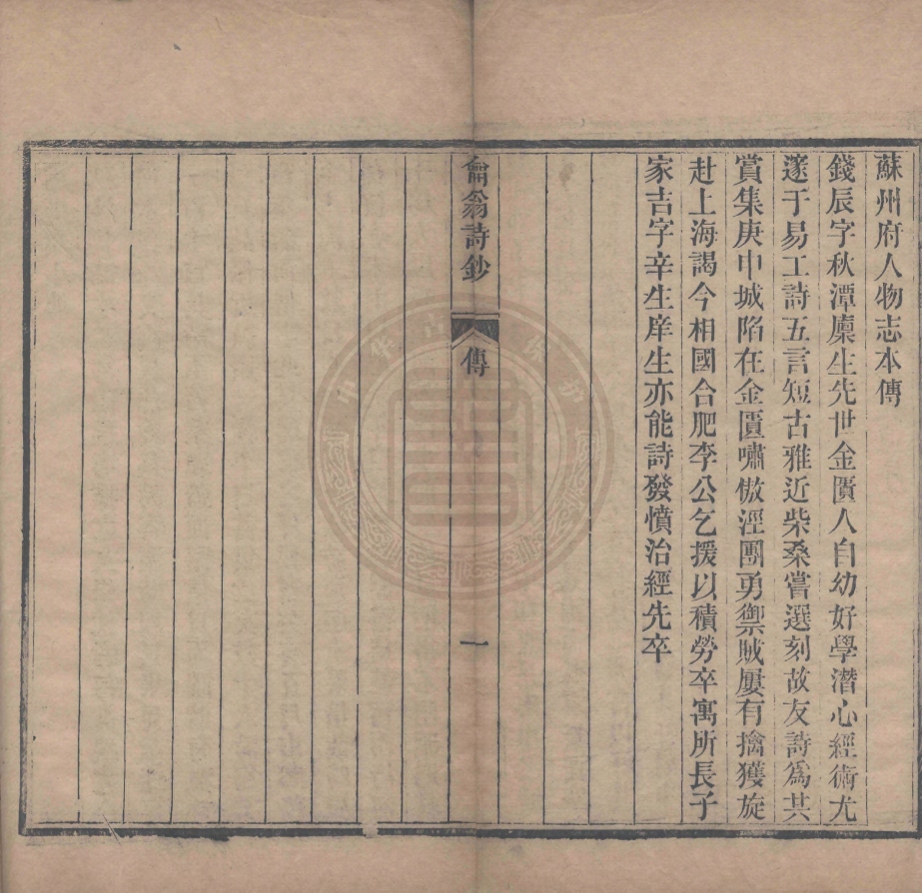 蘇州府人物志本傳
錢辰字秋潭廩生先世金匱人自幼好學潛心經術尤
邃于易工詩五言短古雅近柴桑嘗選刻故友詩爲其
賞集庚申城陷在金匱嘯傲涇團勇禦賊屢有擒獲旋
赴上海謁今相國合肥李公乞援以積勞卒寓所長子
家吉字辛生庠生亦能詩發憤治經先卒
龠翁詩鈔
傳
一